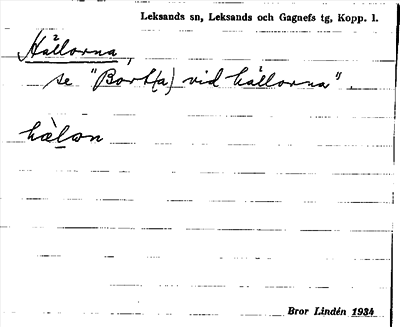 Leksands sn, Leksands och Gagnefs tg, Kopp. l.
Hållorna,
se "Bort(a) vid hållorna".
hælon
Bror Lindén 1934